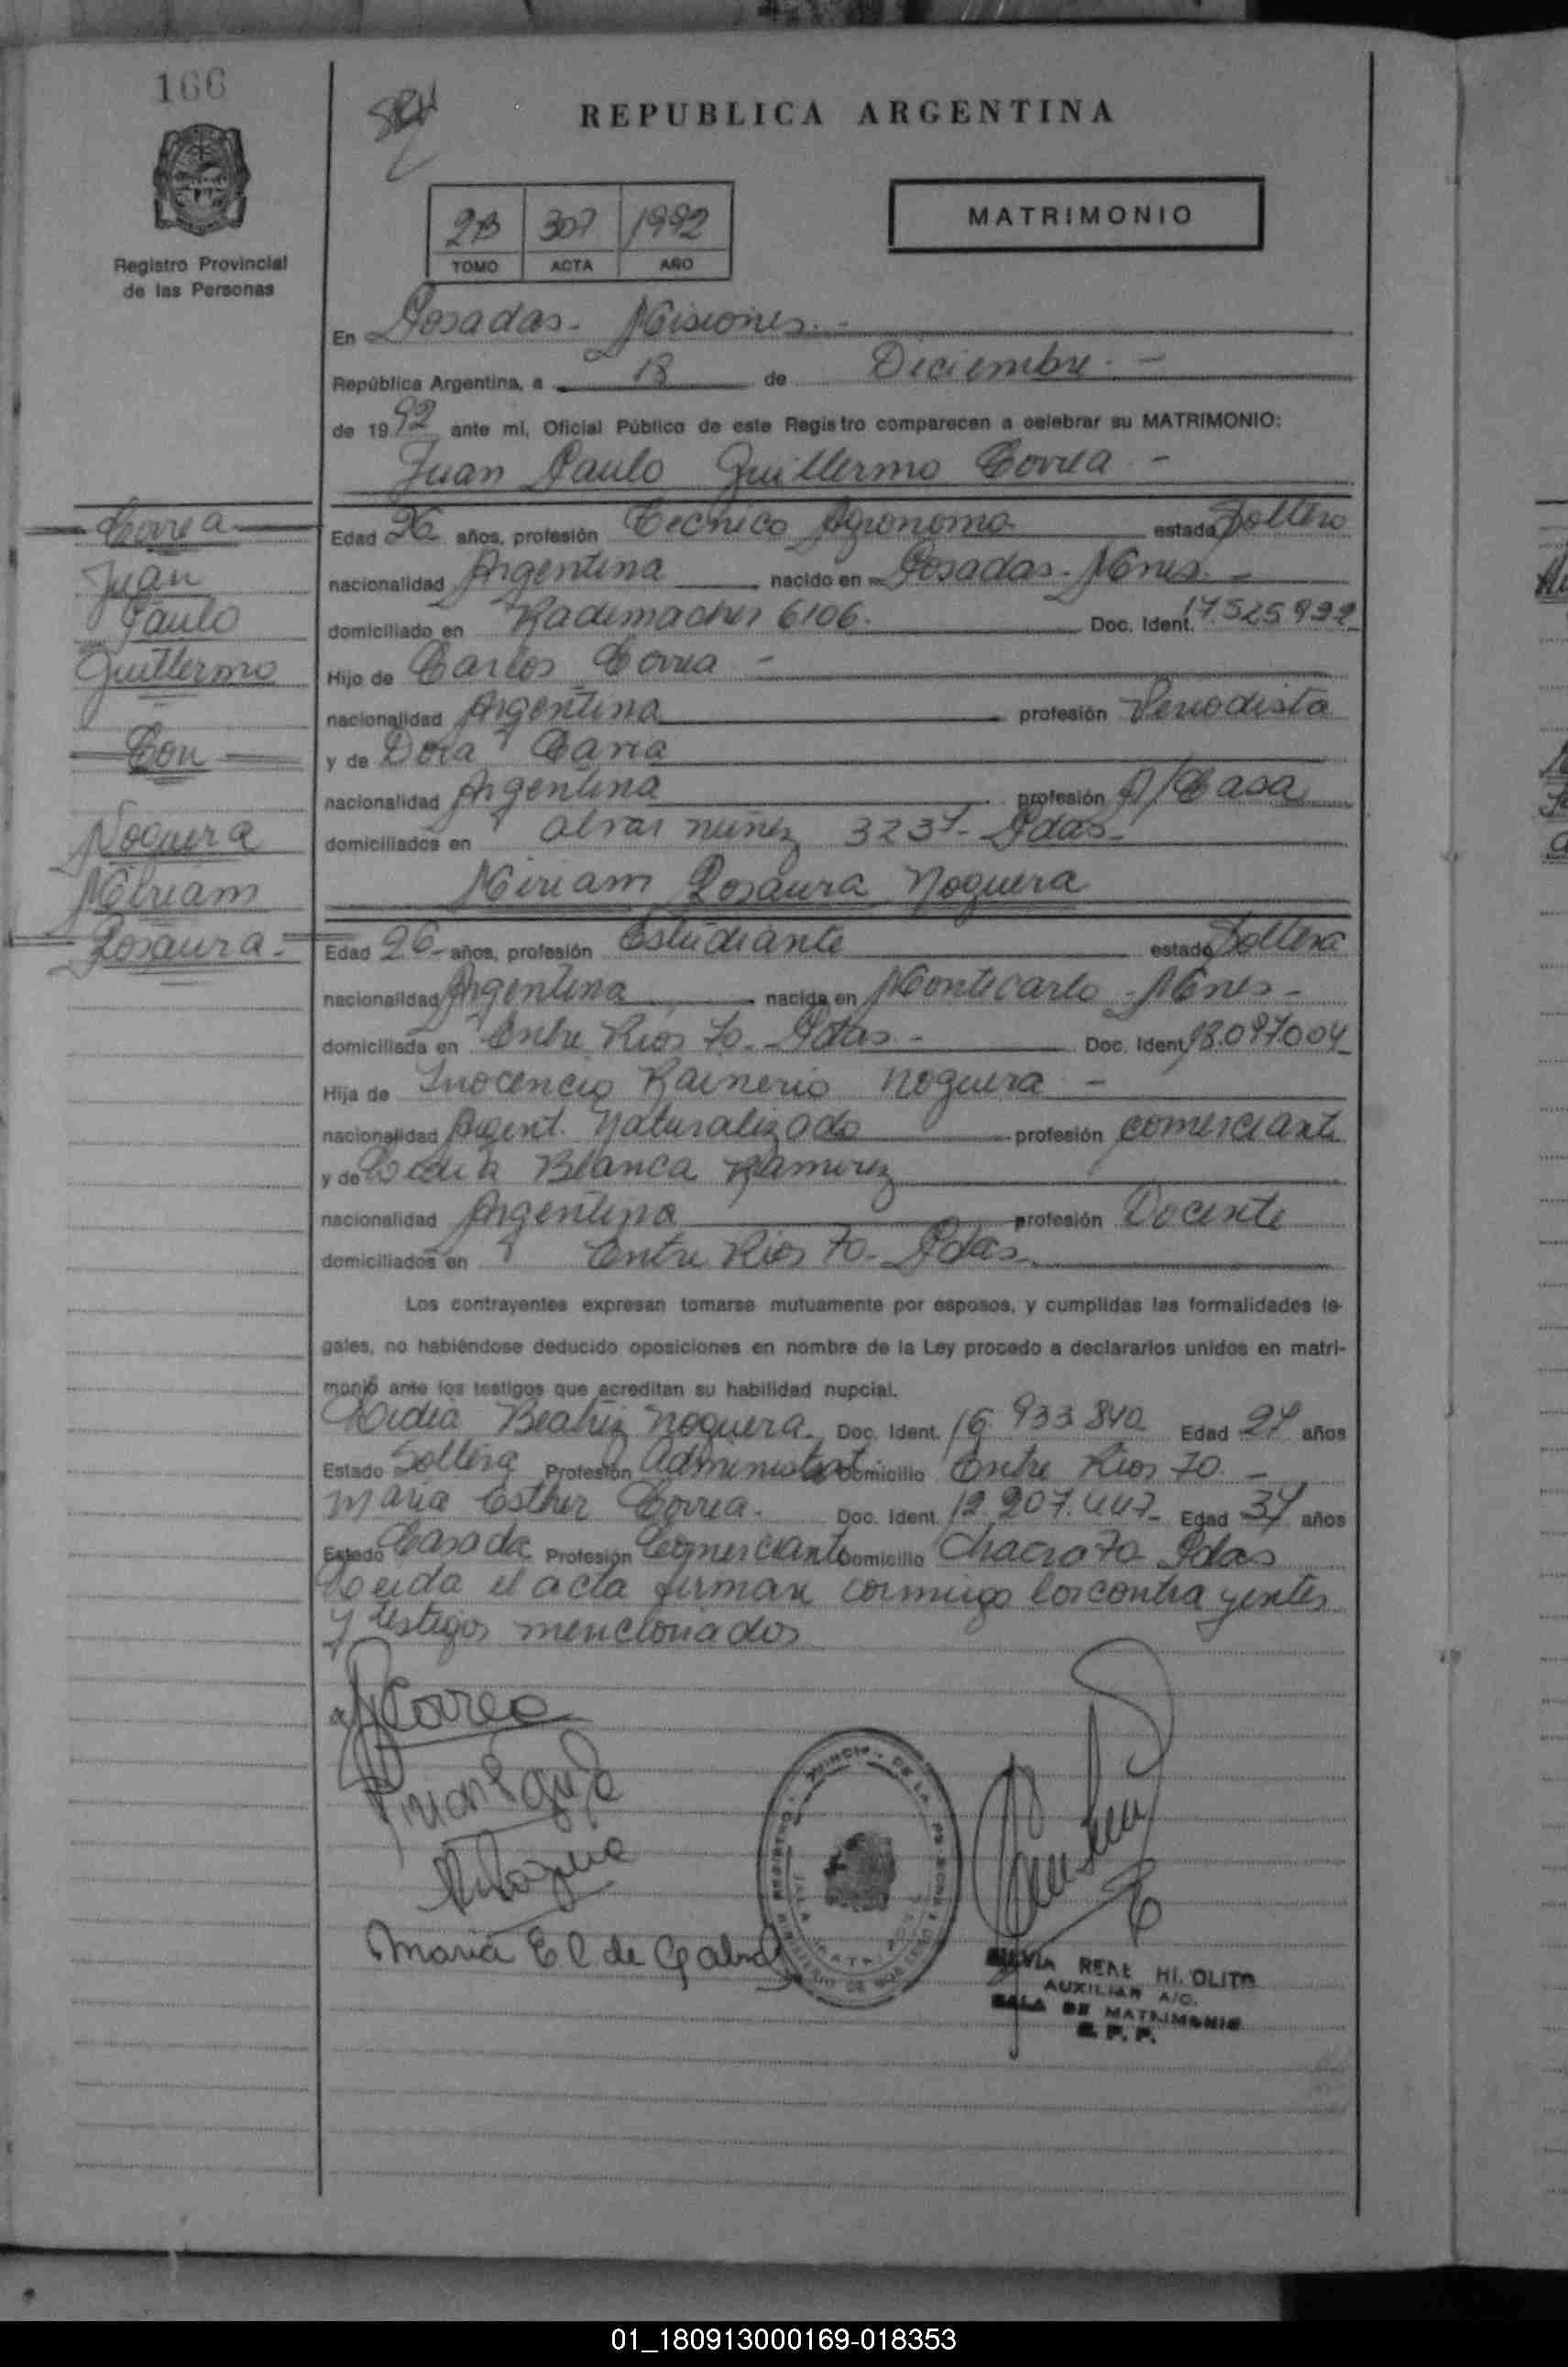 166
REPUBLICA ARGENTINA
2B 307 1992
TOMO ACTA AÑO
MATRIMONIO
Registro Provincial
de las Personas
En Posadas - Misiones. -
República Argentina, a 18 de Diciembre. -
de 1992 ante mí, Oficial Público de este Registro comparecen a celebrar su MATRIMONIO:
Juan Paulo Guillermo Correa -
Correa
Juan
Paulo
Guillermo
Con
Noguera
Miriam
Rosaura -
Edad 26 años, profesión Tecnico Agronomo estado Soltero
nacionalidad Argentina nacido en Posadas - Mnes. -
domiciliado en Rademacher 6106. Doc. Ident. 17.525.992
Hijo de Carlos Correa -
nacionalidad Argentina profesión Periodista
y de Dora
nacionalidad Argentina profesión A/Casa
domiciliados en Alvar nuñez 3237 - Pdas -
Miriam Rosaura Noguera
Edad 26 - años, profesión Estudiante estado Soltera
nacionalidad Argentina nacida en Montecarlo - Mnes -
domiciliada en Entre Rios 70 - Pdas - Doc. Ident. 18.097.004
Hija de Inocencio Rainerio Noguera -
nacionalidad Argent. Naturalizado profesión comerciante
y de Blanca Ramirez
nacionalidad Argentina profesión Docente
domiciliados en Entre Rios 70 - Pdas -
Los contrayentes expresan tomarse mutuamente por esposos, y cumplidas las formalidades le-
gales, no habiéndose deducido oposiciones en nombre de la Ley procedo a declararlos unidos en matri-
monio ante los testigos que acreditan su habilidad nupcial.
Lidia Beatriz Noguera. Doc. Ident. 16.933.840 Edad 27 años
Estado Soltera Profesión Administrat Domicilio Entre Rios 70 -
Maria Esther Correa. Doc. Ident. 12.207.447 - Edad 37 años
Estado Casada Profesión Comerciante Domicilio Chacra 70 Pdas
Leida el acta firman conmigo los contrayentes
y testigos mencionados
Correa
Noguera
Maria E C de Cabral
SILVIA RENE HIPOLITO
AUXILIAR A/C.
SALA DE MATRIMONIO
R. P. P.
01_180913000169-018353